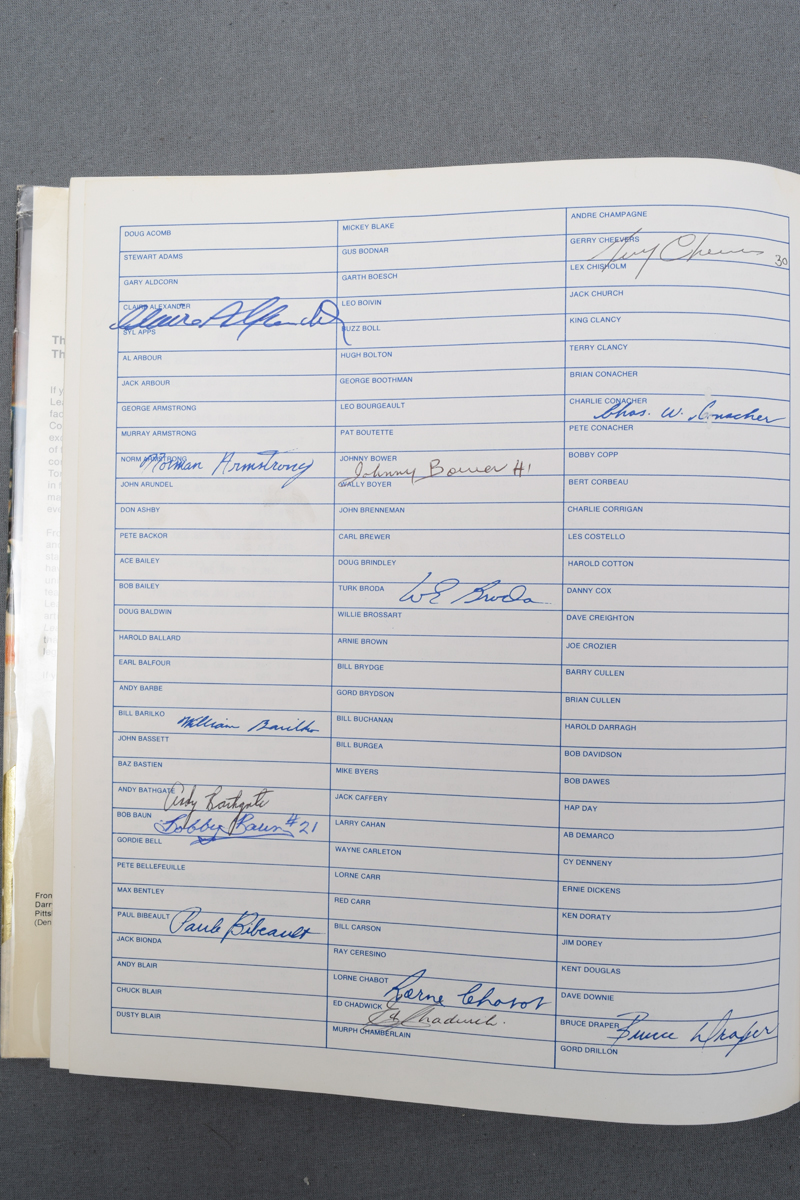 DOUG ACOMB
STEWART ADAMS
GARY ALDCORN
CLAIRE ALEXANDER
Claire Alexander
SYL APPS
AL ARBOUR
JACK ARBOUR
GEORGE ARMSTRONG
MURRAY ARMSTRONG
NORM ARMSTRONG
Norman Armstrong
JOHN ARUNDEL
DON ASHBY
PETE BACKOR
ACE BAILEY
BOB BAILEY
DOUG BALDWIN
HAROLD BALLARD
EARL BALFOUR
ANDY BARBE
BILL BARILKO
William Barilko
JOHN BASSETT
BAZ BASTIEN
ANDY BATHGATE
Andy Bathgate
BOB BAUN
Bobby Baun #21
GORDIE BELL
PETE BELLEFEUILLE
MAX BENTLEY
PAUL BIBEAULT
Paul Bibeault
JACK BIONDA
ANDY BLAIR
CHUCK BLAIR
DUSTY BLAIR
MICKEY BLAKE
GUS BODNAR
GARTH BOESCH
LEO BOIVIN
BUZZ BOLL
HUGH BOLTON
GEORGE BOOTHMAN
LEO BOURGEAULT
PAT BOUTETTE
JOHNNY BOWER
Johnny Bower #1
WALLY BOYER
JOHN BRENNEMAN
CARL BREWER
DOUG BRINDLEY
TURK BRODA
WE Broda
WILLIE BROSSART
ARNIE BROWN
BILL BRYDGE
GORD BRYDSON
BILL BUCHANAN
BILL BURGEA
MIKE BYERS
JACK CAFFERY
LARRY CAHAN
WAYNE CARLETON
LORNE CARR
RED CARR
BILL CARSON
RAY CERESINO
LORNE CHABOT
Lorne Chabot
ED CHADWICK
Ed Chadwick
MURPH CHAMBERLAIN
ANDRE CHAMPAGNE
GERRY CHEEVERS
Gerry Cheevers 30
LEX CHISHOLM
JACK CHURCH
KING CLANCY
TERRY CLANCY
BRIAN CONACHER
CHARLIE CONACHER
Chas. W. Conacher
PETE CONACHER
BOBBY COPP
BERT CORBEAU
CHARLIE CORRIGAN
LES COSTELLO
HAROLD COTTON
DANNY COX
DAVE CREIGHTON
JOE CROZIER
BARRY CULLEN
BRIAN CULLEN
HAROLD DARRAGH
BOB DAVIDSON
BOB DAWES
HAP DAY
AB DEMARCO
CY DENNENY
ERNIE DICKENS
KEN DORATY
JIM DOREY
KENT DOUGLAS
DAVE DOWNIE
BRUCE DRAPER
Bruce Draper
GORD DRILLON